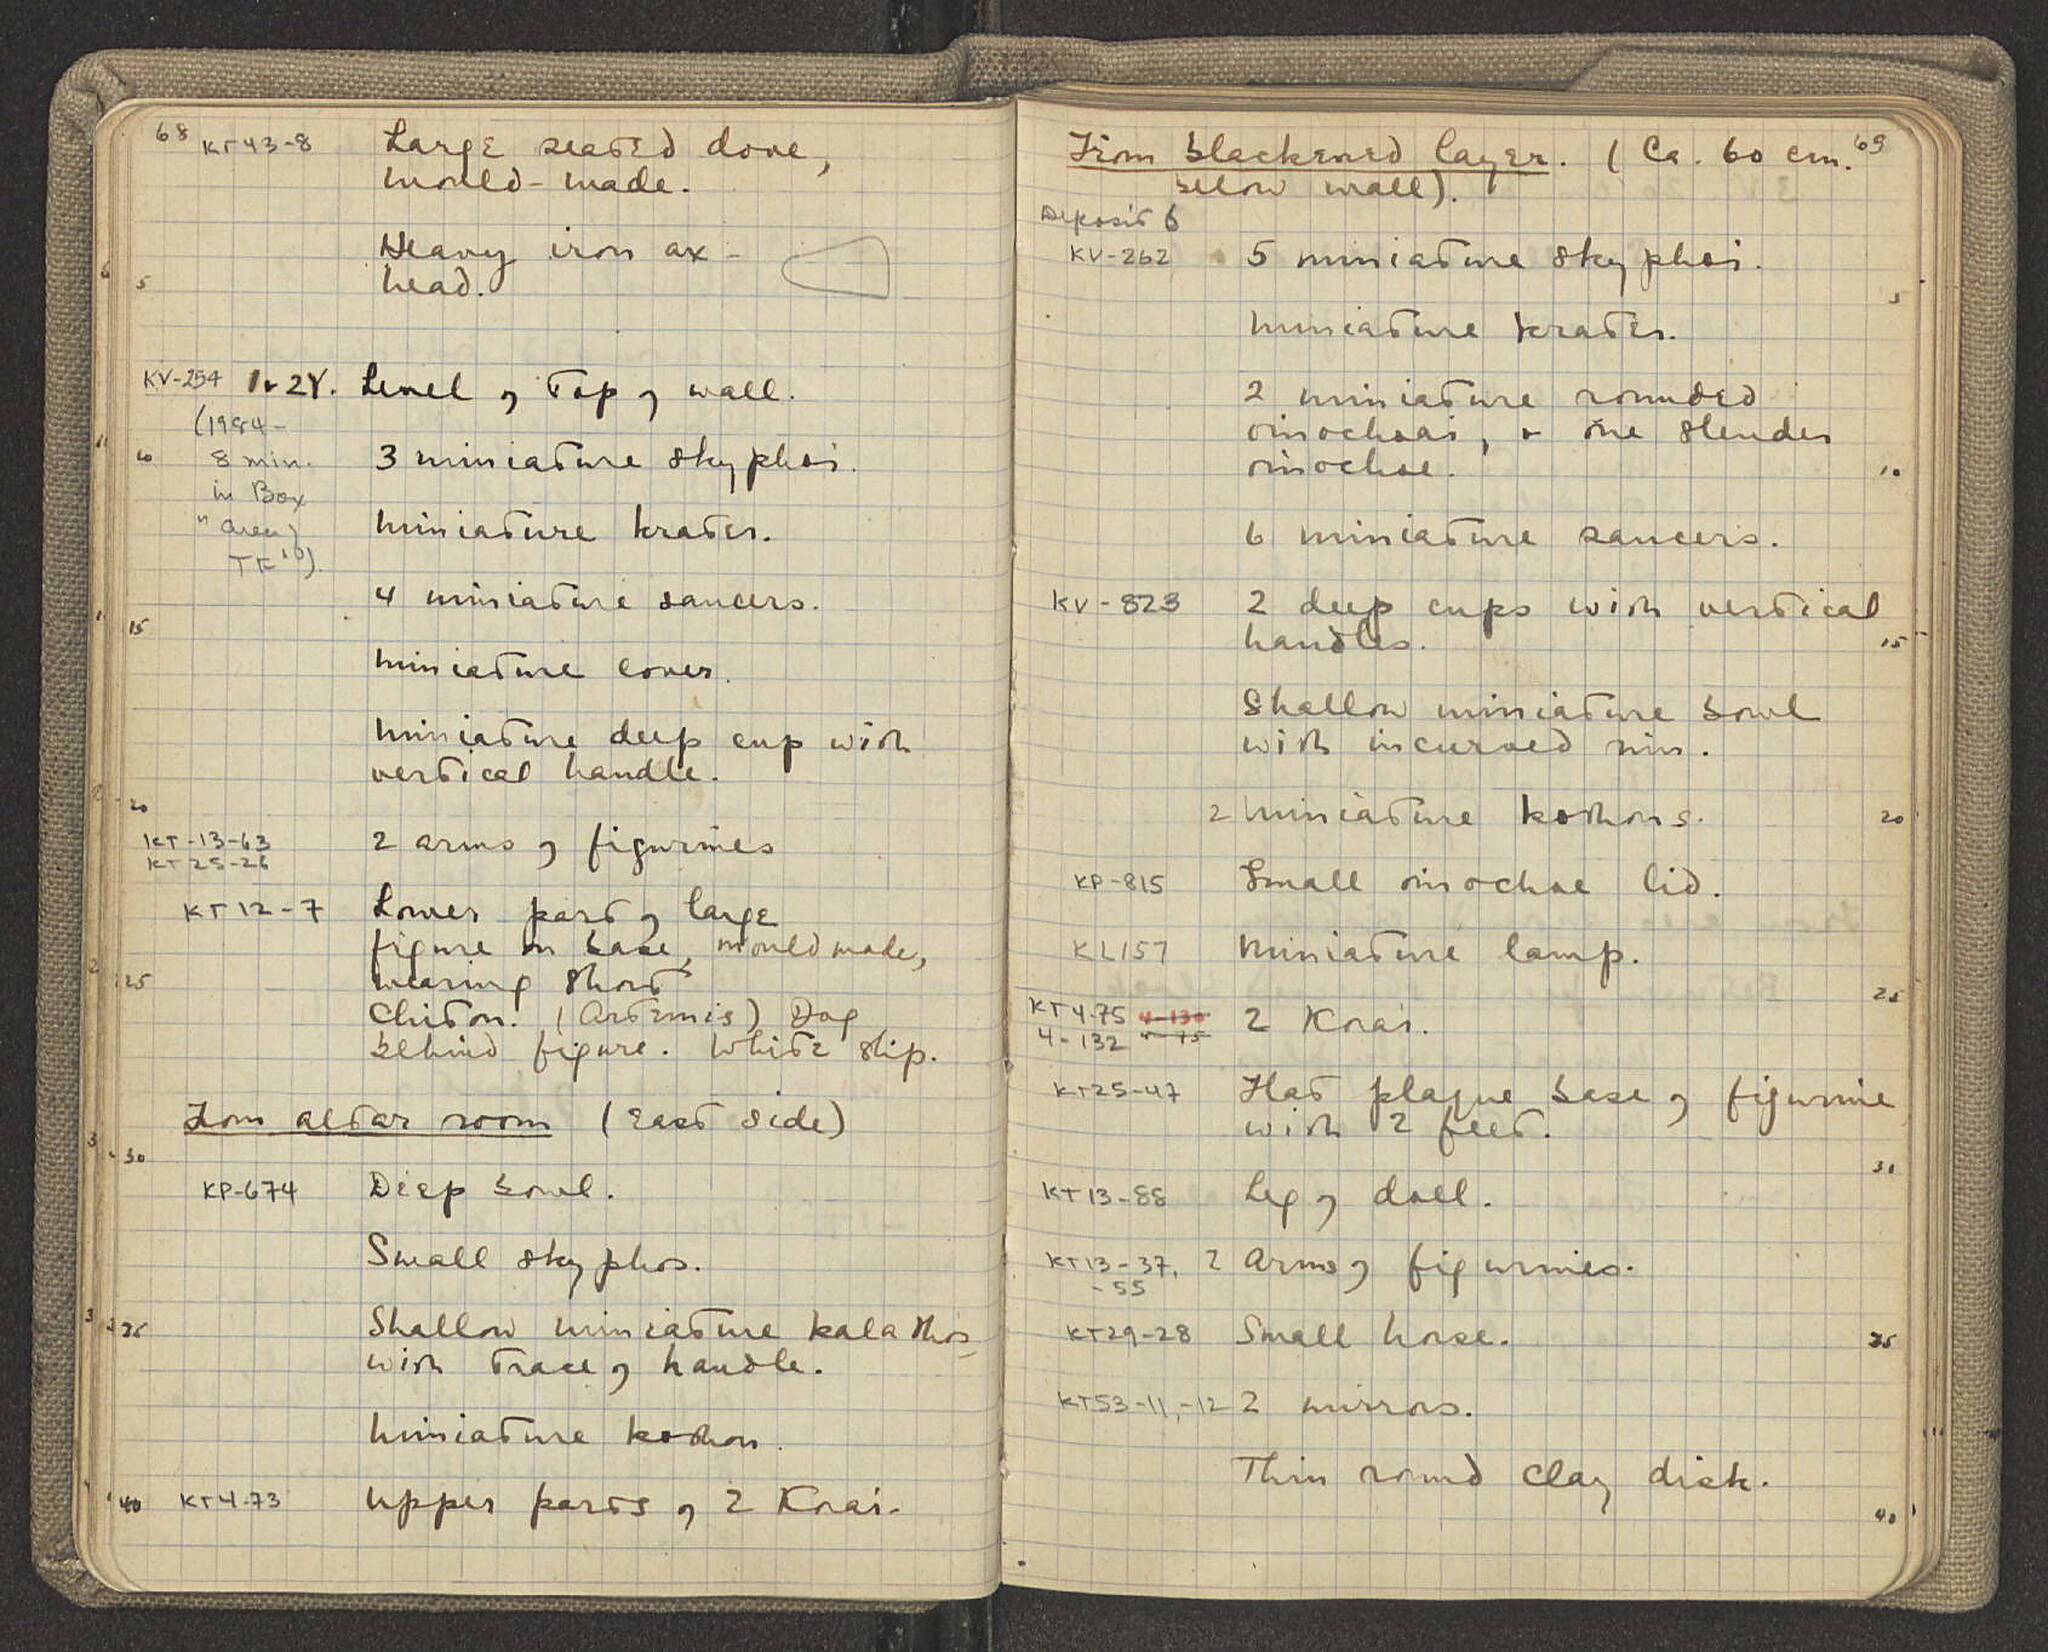 68 KT43-8 Large seated dove,
mould-made.
Heavy iron ax-
head.
5
KV-254 1+2Y. Level of top of wall.
(1984-
10 8 min. 3 miniature skyphoi.
in Box
"area Miniature krater.
TK").
4 miniature saucers.
15
Miniature cover.
Miniature deep cup with
vertical handle.
20
KT-13-63 2 arms of figurines
KT25-26
KT12-7 Lower part of large
figure on base, mouldmade,
25 wearing short
chiton. (Artemis) Dog
behind figure. White slip.
From altar room (East side)
30
KP-674 Deep bowl.
Small skyphos.
35 Shallow miniature kalathos
with trace of handle.
Miniature kothon.
40 KT4-73 Upper parts of 2 Korai.
69
From blackened layer. (Ca. 60 cm.
below wall).
Deposit 6
KV-262 5 miniature skyphoi.
5
Miniature krater.
2 miniature rounded
oinochoai, + one slender
oinochoe. 10
6 miniature saucers.
KV-823 2 deep cups with vertical
handles. 15
Shallow miniature bowl
with incurved rim.
2 Miniature kothons. 20
KP-815 Small oinochoe lid.
KL157 Miniature lamp.
25
KT4-75 4-130 2 Korai.
4-132 4-75
KT25-47 Flat plaque base of figurine
with 2 feet.
30
KT13-88 Leg of doll.
KT13-37, 2 Arms of figurines.
-55
KT29-28 Small horse. 35
KT53-11,-12 2 mirrors.
Thin round clay disk.
40